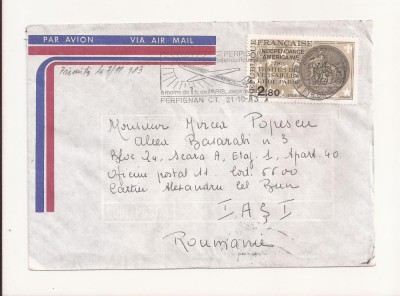 PAR AVION VIA AIR MAIL
Primită la 2/11 983
PERPIG
à moins de 1h de PARIS
PERPIGNAN CT. 21-10 83
FRANÇAISE
INDEPENDANCE
AMERICAINE
TRAITES DE
VERSAILLES
ET DE PARIS
2,80
Monsieur Mircea Popescu
Aleea Basarabi n 3
Bloc 24, Scara A, Etaj 1, Apart. 40
Oficiu postal 11. Cod. 6600
Cartier Alexandru cel Bun
IAŞI
Roumanie